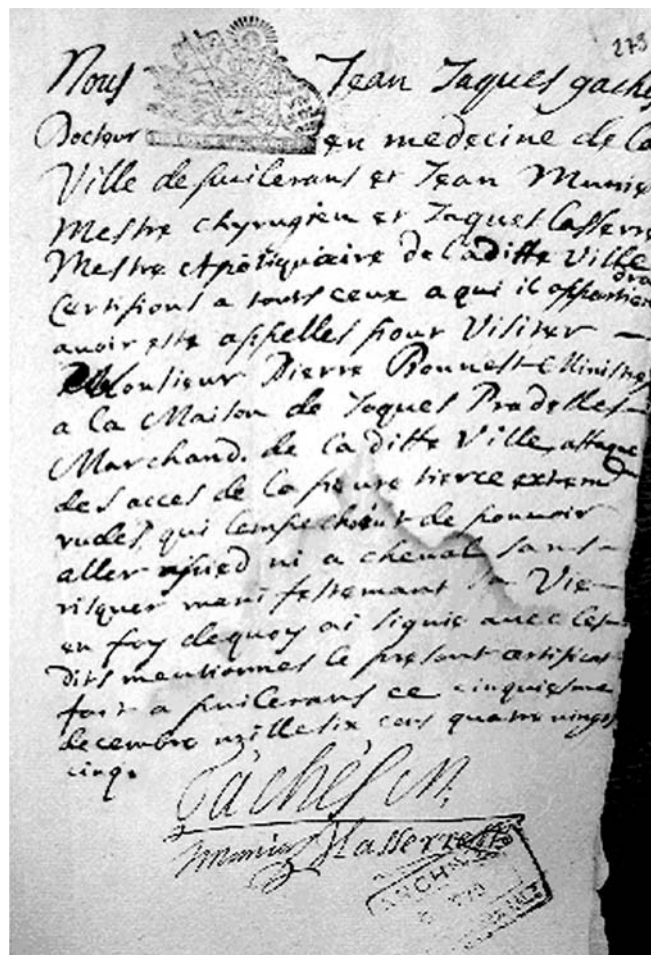 273
Nous Jean Jaques gaches
Docteur en medecine de la
Ville de puilerans et Jean Munie
Mestre chyrugien et Jaques Lasserre
Mestre Apotiquaire de laditte Ville
Certifions a tous ceux a qui il appartien
dra
avoir este appelles pour Visiter —
Monsieur Pierre Bonnest Ministre
a la Maison de Jaques Pradelles
Marchand de laditte Ville attaque
des acces de la fievre tierce extrem
rudes qui lempechoint de pouvoir
aller apied ni a cheval sans
risquer manifestemant sa Vie
en foy dequoy ai signie avec les
dits mentionnes le present certificat
fait a puilerans ce cinquiesme
decembre mille six cens quatre vingts
cinq.
Gachés M.
Munie Lasserre
ARCHIVES